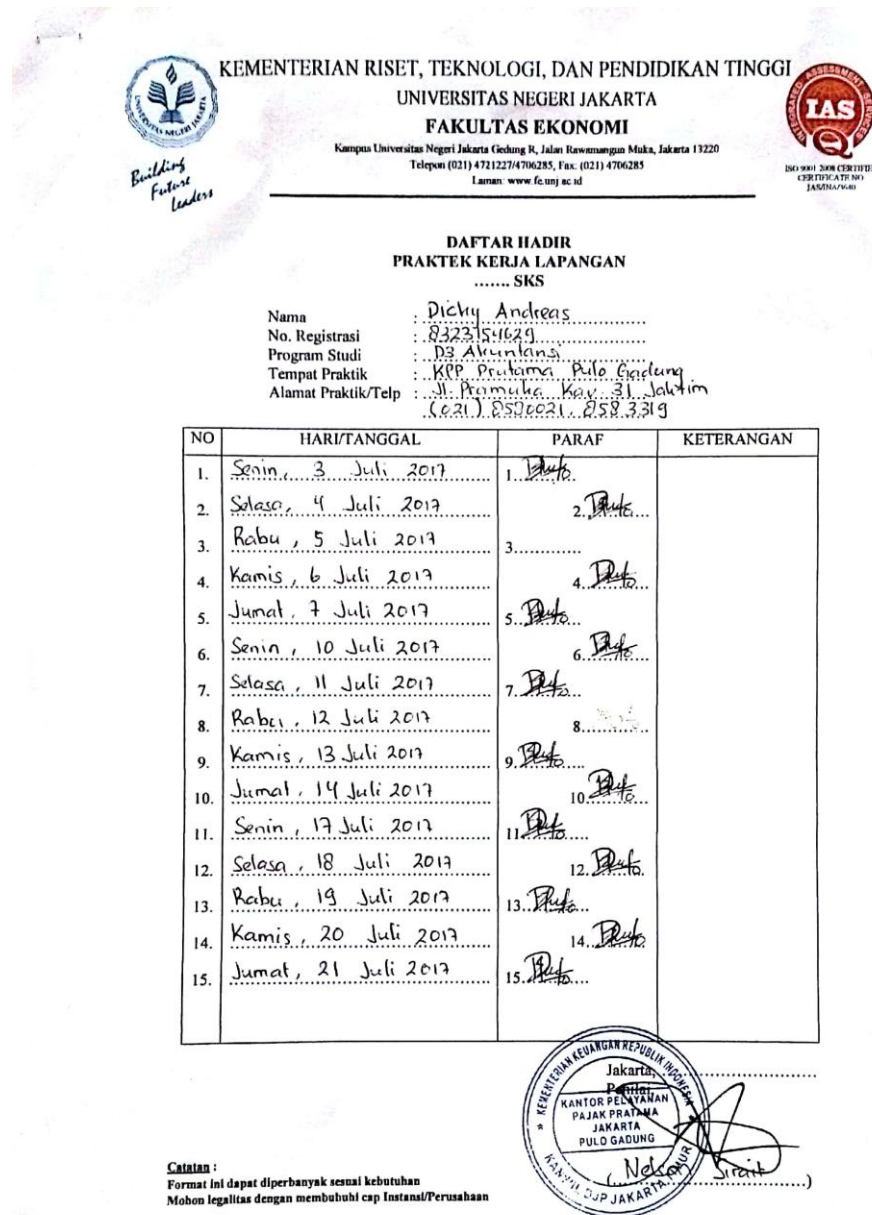 KEMENTERIAN RISET, TEKNOLOGI, DAN PENDIDIKAN TINGGI
UNIVERSITAS NEGERI JAKARTA
FAKULTAS EKONOMI
Kampus Universitas Negeri Jakarta Gedung R, Jalan Rawamangun Muka, Jakarta 13220
Telepon (021) 4721227/4706285, Fax: (021) 4706285
Laman: www.fe.unj.ac.id
Building
Future
Leaders
IAS
ISO 9001 2008 CERTIFIED
CERTIFICATE NO
DAFTAR HADIR
PRAKTEK KERJA LAPANGAN
....... SKS
Nama : Dicky Andreas
No. Registrasi : 8323154629
Program Studi : D3 Akuntansi
Tempat Praktik : KPP Pratama Pulo Gadung
Alamat Praktik/Telp : Jl. Pramuka Kav. 31 Jaktim
(021) 8580021, 858 3319
NO HARI/TANGGAL PARAF KETERANGAN
1. Senin, 3 Juli 2017 1.
2. Selasa, 4 Juli 2017 2.
3. Rabu, 5 Juli 2017 3.............
4. Kamis, 6 Juli 2017 4.
5. Jumat, 7 Juli 2017 5.
6. Senin, 10 Juli 2017 6.
7. Selasa, 11 Juli 2017 7.
8. Rabu, 12 Juli 2017 8.
9. Kamis, 13 Juli 2017 9.
10. Jumat, 14 Juli 2017 10.
11. Senin, 17 Juli 2017 11.
12. Selasa, 18 Juli 2017 12.
13. Rabu, 19 Juli 2017 13.
14. Kamis, 20 Juli 2017 14.
15. Jumat, 21 Juli 2017 15.
Jakarta,
Penilai,
KEMENTERIAN KEUANGAN REPUBLIK INDONESIA
KANTOR PELAYANAN
PAJAK PRATAMA
JAKARTA
PULO GADUNG
KANWIL DJP JAKARTA TIMUR
(Nelson Sirait)
Catatan :
Format ini dapat diperbanyak sesuai kebutuhan
Mohon legalitas dengan membubuhi cap Instansi/Perusahaan